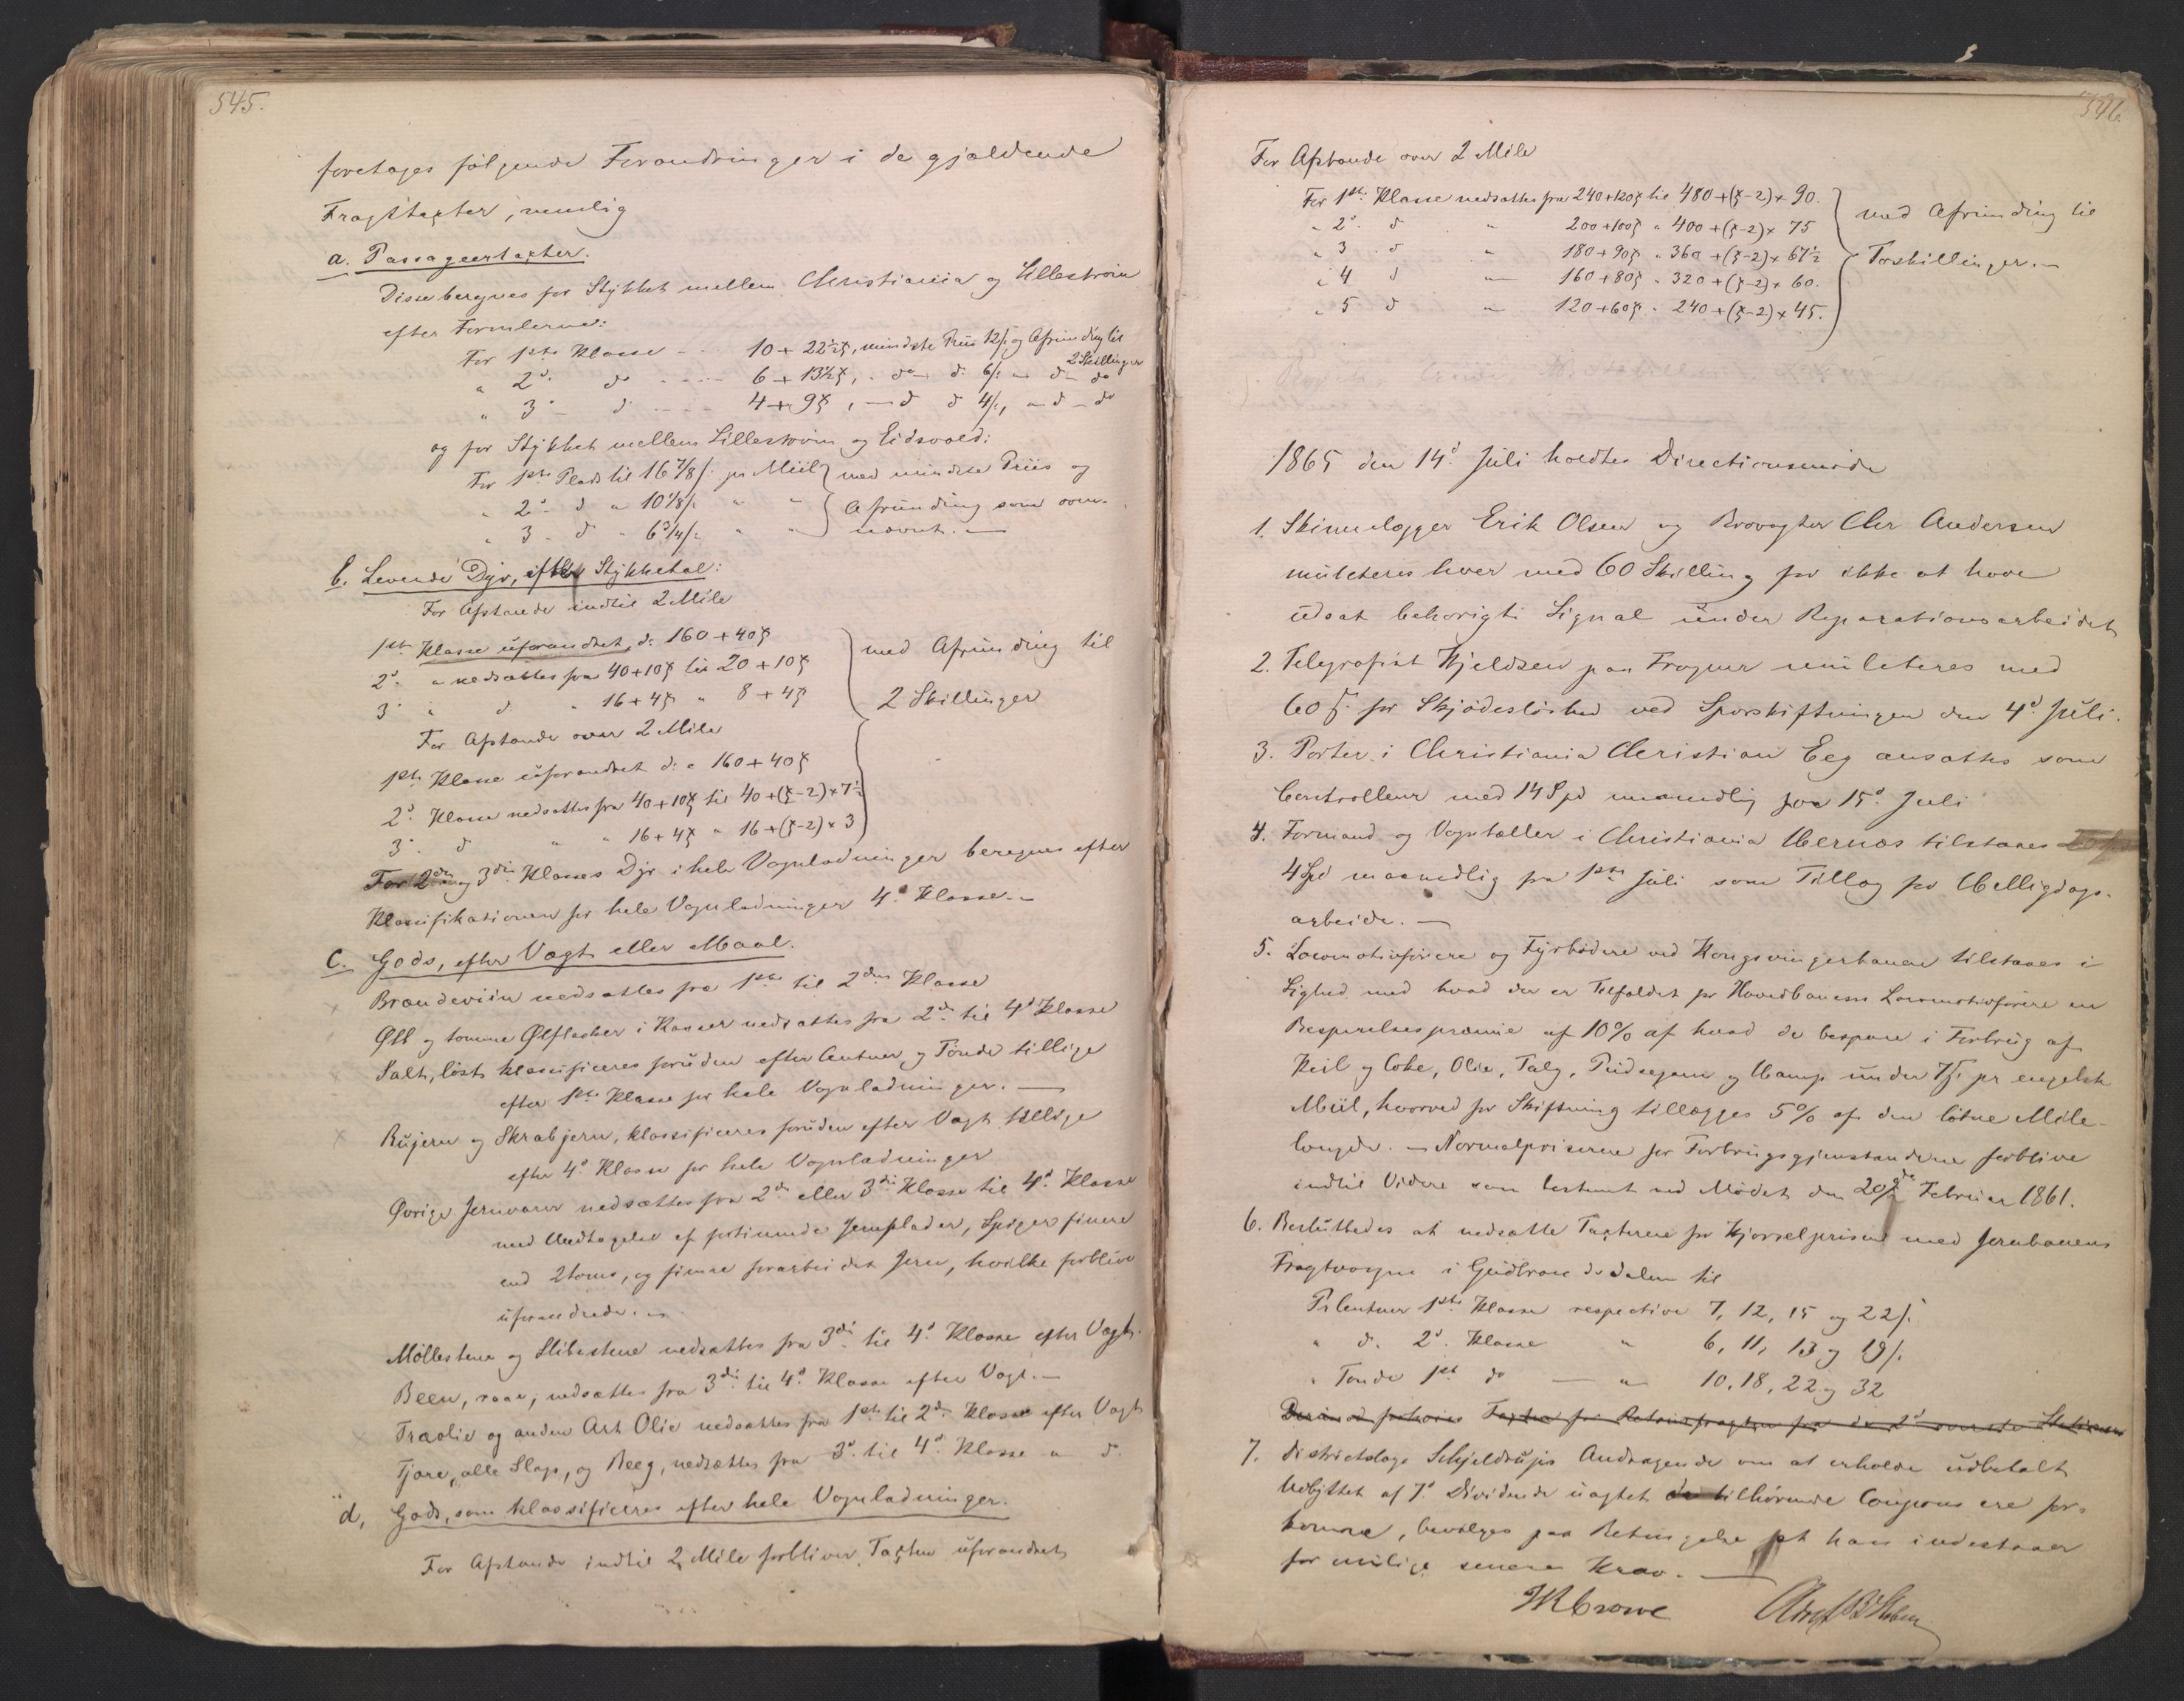 545.
foretages følgende Forandringer i de gjældende
Fragttaxter, nemlig
a. Passageertaxter.
Disse beregnes for Stykket mellem Christiania og Lillestrøm
efter Formlerne:
For 1ste Klasse - - - 10 + 22½ξ, mindste Priis 12/: og Afrunding til
2 Skillinger
" 2d. do - - - - 6 + 13½ξ, - do - d. 6/: - d - do
" 3 - d - - - 4 + 9ξ, - d d 4/:, - d - do
og for Stykket mellem Lillestrøm og Eidsvold:
For 1ste Plads til 16 7/8/: pr Miil } med mindste Priis og
" 2d - d " 10 1/8/: " " } Afrunding som oven-
" 3 - d " 6 3/4/: " " } nævnt. -
b. Levende Dyr, efter Stykketal:
For Afstande indtil 2 Mile
1ste Klasse uforandret, d: 160 + 40ξ } med Afrunding til
2d. " nedsættes fra 40+10ξ til 20 + 10ξ
3d " d " 16 + 4ξ " 8 + 4ξ } 2 Skillinger
For Afstande over 2 Mile
1ste Klasse uforandret d: a 160 + 40ξ
2d. Klasse nedsættes fra 40+10ξ til 40 + (ξ-2) × 7½
3d. d " " 16 + 4ξ " 16 + (ξ-2) × 3
For 2den og 3die Klasses Dyr i hele Vognladninger beregnes efter
Klassifikationen for hele Vognladninger 4d Klasse. -
c. Gods, efter Vægt eller Maal.
Brændeviin nedsættes fra 1ste til 2den Klasse
Øll og tomme Ølflasker i Kasser nedsættes fra 2den til 4d Klasse
Salt, løst, klassificeres foruden efter Centner og Tønde tillige
efter 1ste Klasse for hele Vognladninger. -
Rujern og Skrabjern, klassificeres foruden efter Vægt tillige
efter 4d Klasse for hele Vognladninger
Øvrige Jernvarer nedsættes fra 2den eller 3die Klasse til 4d. Klasse
med Undtagelse af fortinnede Jernplader, Spiger finere
end 2 toms, og finere forarbeidet Jern, hvilke forblive
uforandrede. -
Møllestene og Slibestene nedsættes fra 3die til 4d. Klasse efter Vægt.
Been, raae, nedsættes fra 3die til 4d Klasse efter Vægt. -
Træolie og anden Art Olie nedsættes fra 1ste til 2den Klasse efter Vægt
Tjære, alle Slags, og Beeg, nedsættes fra 3d. til 4d Klasse " d
d, Gods, som klassificeres efter hele Vognladninger.
For Afstande indtil 2 Mile forbliver Taxten uforandret
546.
For Afstande over 2 Mile
For 1ste Klasse nedsættes fra 240+120ξ til 480 + (ξ-2) × 90. } med Afrunding til
" 2d. d " 200+100ξ " 400 + (ξ-2) × 75
" 3 . d " 180+90ξ " 360 + (ξ-2) × 67½ } Toskillinger. -
" 4 d " 160+80ξ " 320 + (ξ-2) × 60.
" 5 d " 120+60ξ " 240 + (ξ-2) × 45.
1865 den 14d Juli holdtes Directionsmøde
1. Skinnelægger Erik Olsen og Brovogter Chr Andersen
mulcteres hver med 60 Skilling for ikke at have
udsat behørigt Signal under Reparationsarbeidet
2. Telegrafist Kjeldsen paa Frogner mulcteres med
60 /: for Skjødesløshed ved Sporskiftningen den 4d. Juli.
3. Porter i Christiania Christian Eeg ansættes som
Controlleur med 14 Spd maanedlig fra 15d. Juli
4. Formand og Vogntæller i Christiania Hernæs tilstaaes
4 Spd maanedlig fra 1ste Juli som Tillæg for Helligdags-
arbeide. -
5. Locomotivførere og Fyrbødere ved Kongsvingerbanen tilstaaes i
Lighed med hvad der er Tilfældet for Hovedbanens Locomotivførere en
Besparelsespræmie af 10% af hvad de bespare i Forbrug af
Kul og Coke, Olie, Talg, Pudsegarn og Hamp under 7/: pr engelsk
Miil, hvorved for Skiftning tillægges 5% af den løbne Mile-
længde. - Normalpriserne for Forbrugsgjenstandene forblive
indtil Videre som bestemt ved Mødet den 20de Februar 1861.
6. Besluttedes at nedsætte Taxterne for Kjørselprisen med Jernbanens
Fragtvogne i Gudbrandsdalen til
Pr Centner 1ste Klasse respective 7, 12, 15 og 22/:
" d. 2d. Klasse " 6, 11, 13 og 19/:
" Tønde 1ste do - " 10, 18, 22 og 32
Derimod forhøies Taxten for Retourfragten fra de 2d øverste Stationer
7. Districtslæge Schjeldrups Andragende om at erholde udbetalt
Udbyttet af 7d. Dividende uagtet de tilhørende Coupons ere for-
komne, bevilges paa Betingelse at han indestaaer
for mulige senere Krav. -
JRCrowe